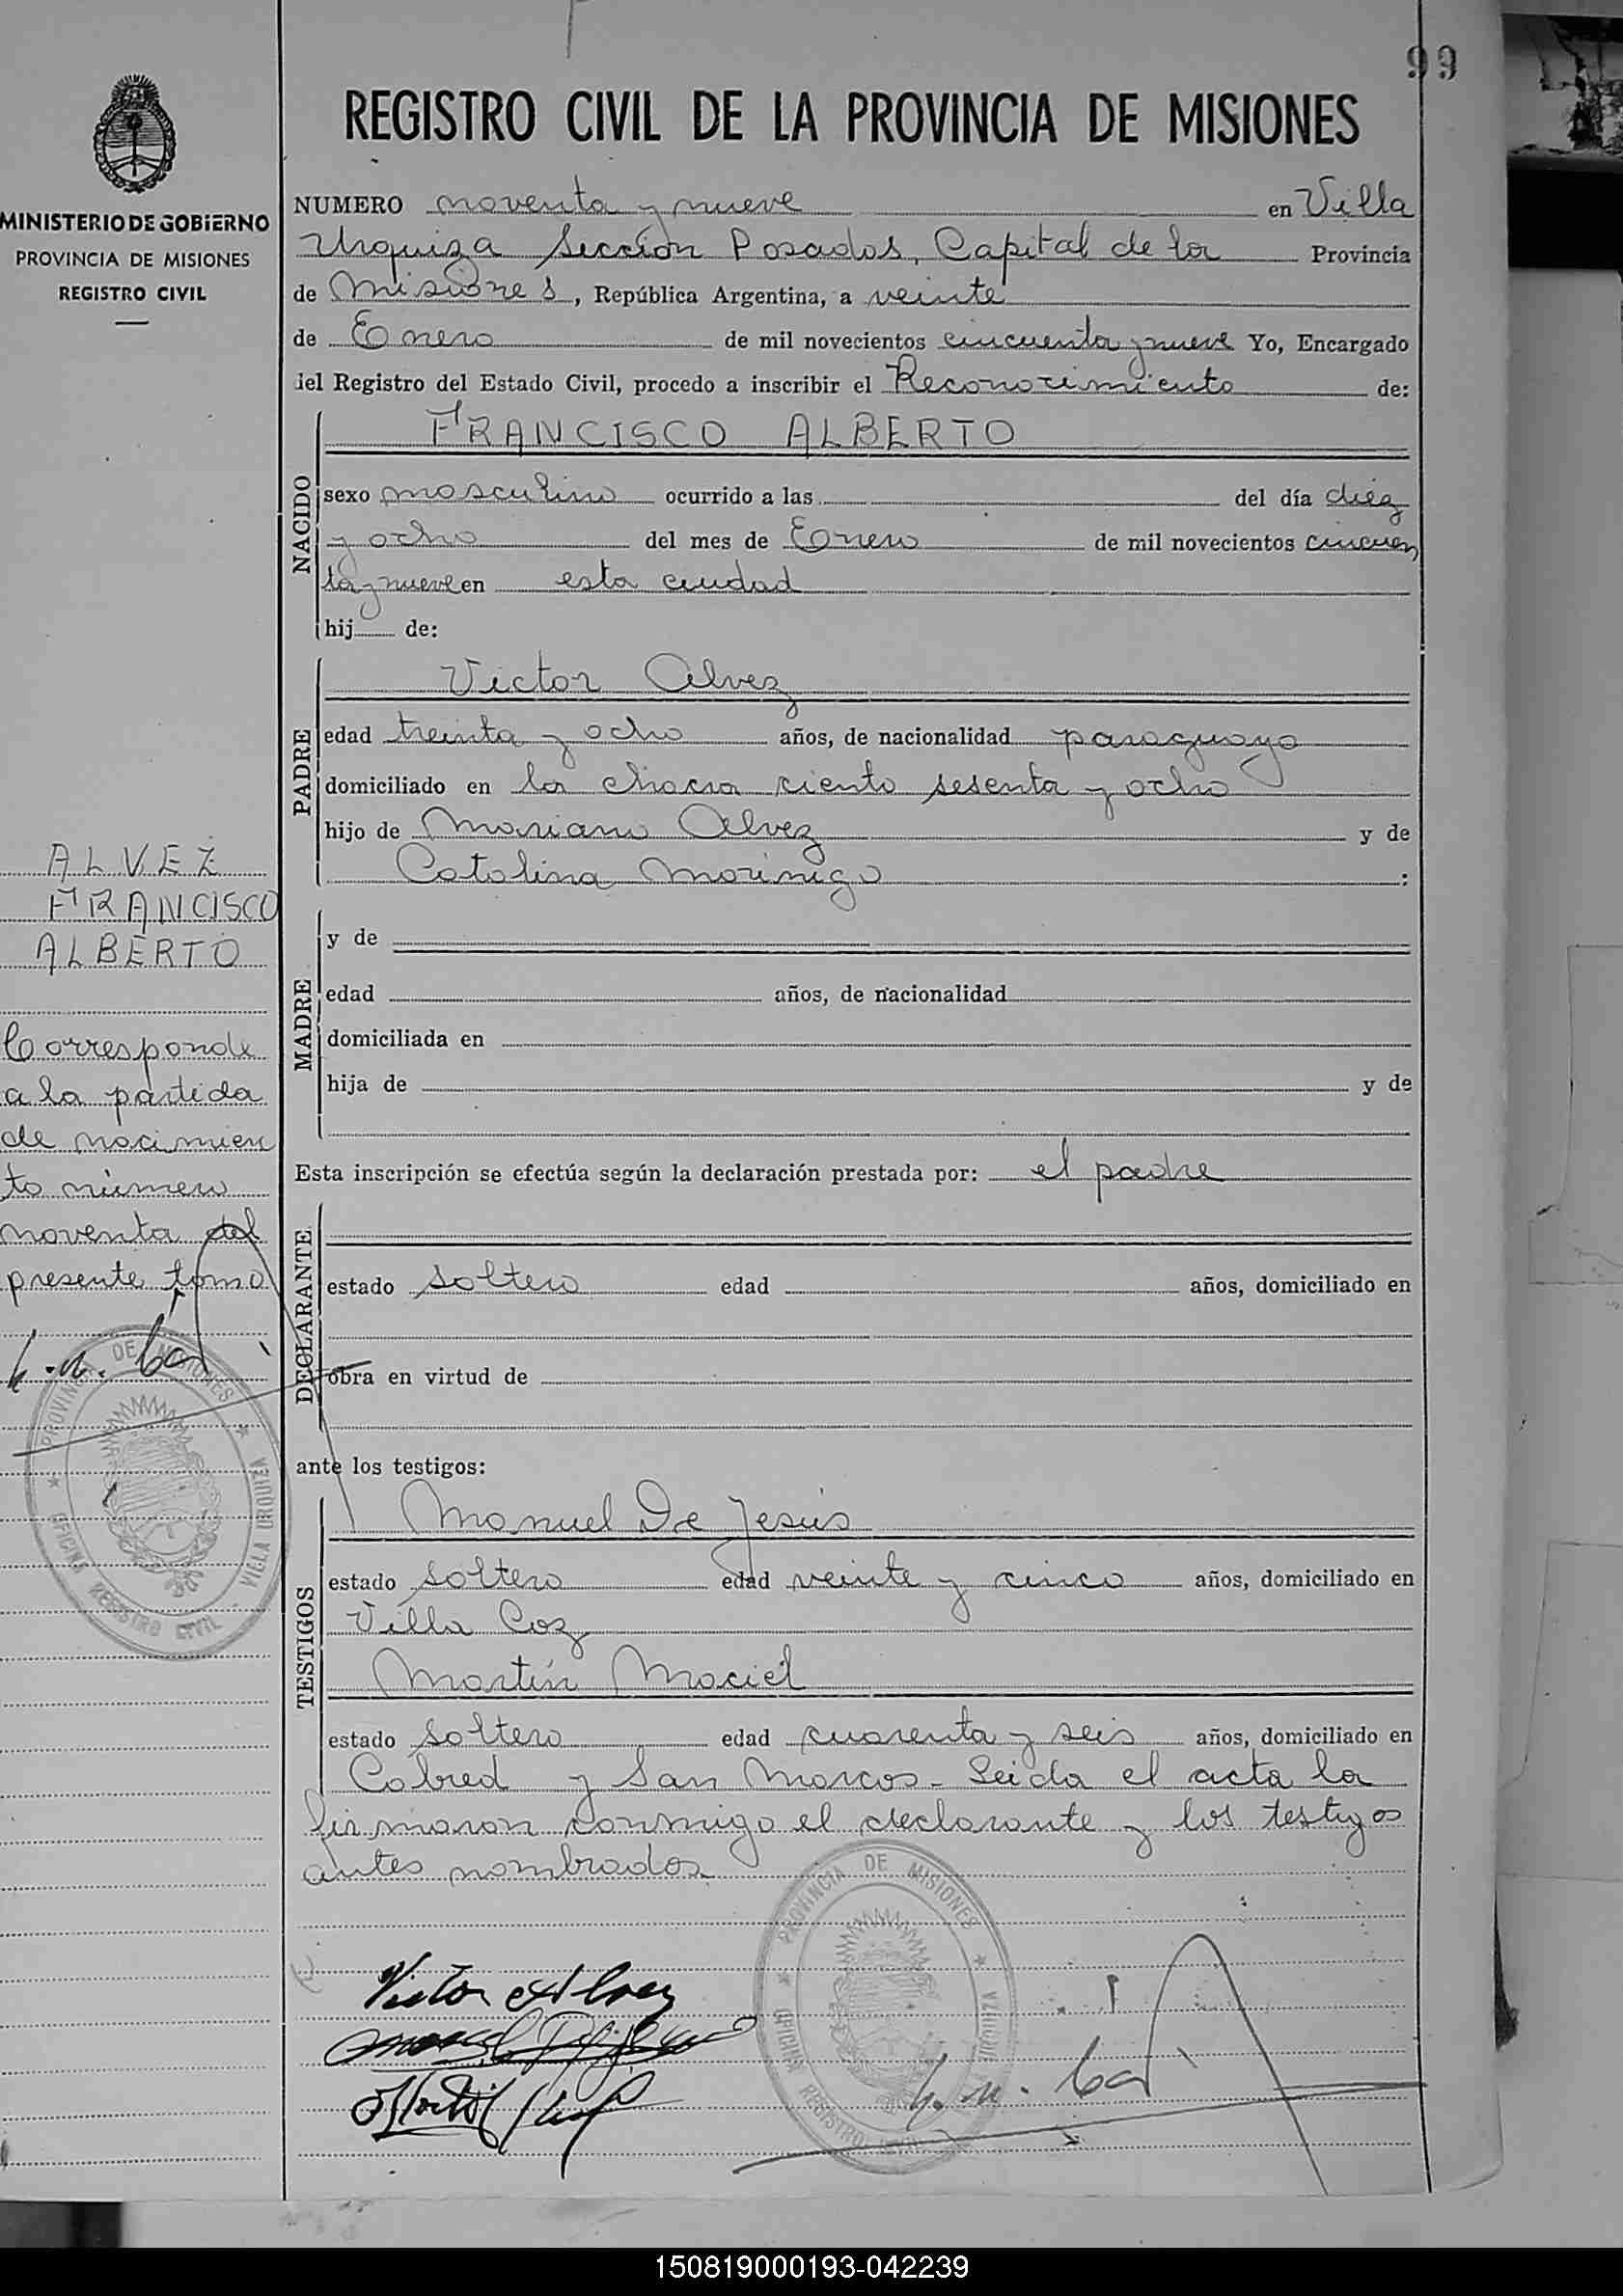 99
REGISTRO CIVIL DE LA PROVINCIA DE MISIONES
MINISTERIO DE GOBIERNO
PROVINCIA DE MISIONES
REGISTRO CIVIL
NUMERO noventa y nueve en Villa
Urquiza Sección Posadas, Capital de la Provincia
de Misiones, República Argentina, a veinte
de Enero de mil novecientos cincuenta y nueve Yo, Encargado
del Registro del Estado Civil, procedo a inscribir el Reconocimiento de:
NACIDO
FRANCISCO ALBERTO
sexo masculino ocurrido a las del día diez
y ocho del mes de Enero de mil novecientos cincuen
ta y nueve en esta ciudad
hij de:
PADRE
Victor Alvez
edad treinta y ocho años, de nacionalidad paraguayo
domiciliado en la chacra ciento sesenta y ocho
hijo de Mariano Alvez y de
Catalina Morinigo :
MADRE
y de
edad años, de nacionalidad
domiciliada en
hija de y de
Esta inscripción se efectúa según la declaración prestada por: el padre
DECLARANTE
estado soltero edad años, domiciliado en
obra en virtud de
ante los testigos:
TESTIGOS
Manuel De Jesús
estado soltero edad veinte y cinco años, domiciliado en
Villa Coz
Martín Maciel
estado soltero edad cuarenta y seis años, domiciliado en
Cabred y San Marcos - Leida el acta la
firmaron conmigo el declarante y los testigos
antes nombrados
ALVEZ
FRANCISCO
ALBERTO
Corresponde
a la partida
de nacimien
to número
noventa del
presente tomo
PROVINCIA DE MISIONES
OFICINA REGISTRO CIVIL - VILLA URQUIZA
Victor Alvez
PROVINCIA DE MISIONES
OFICINA REGISTRO CIVIL URQUIZA
150819000193-042239